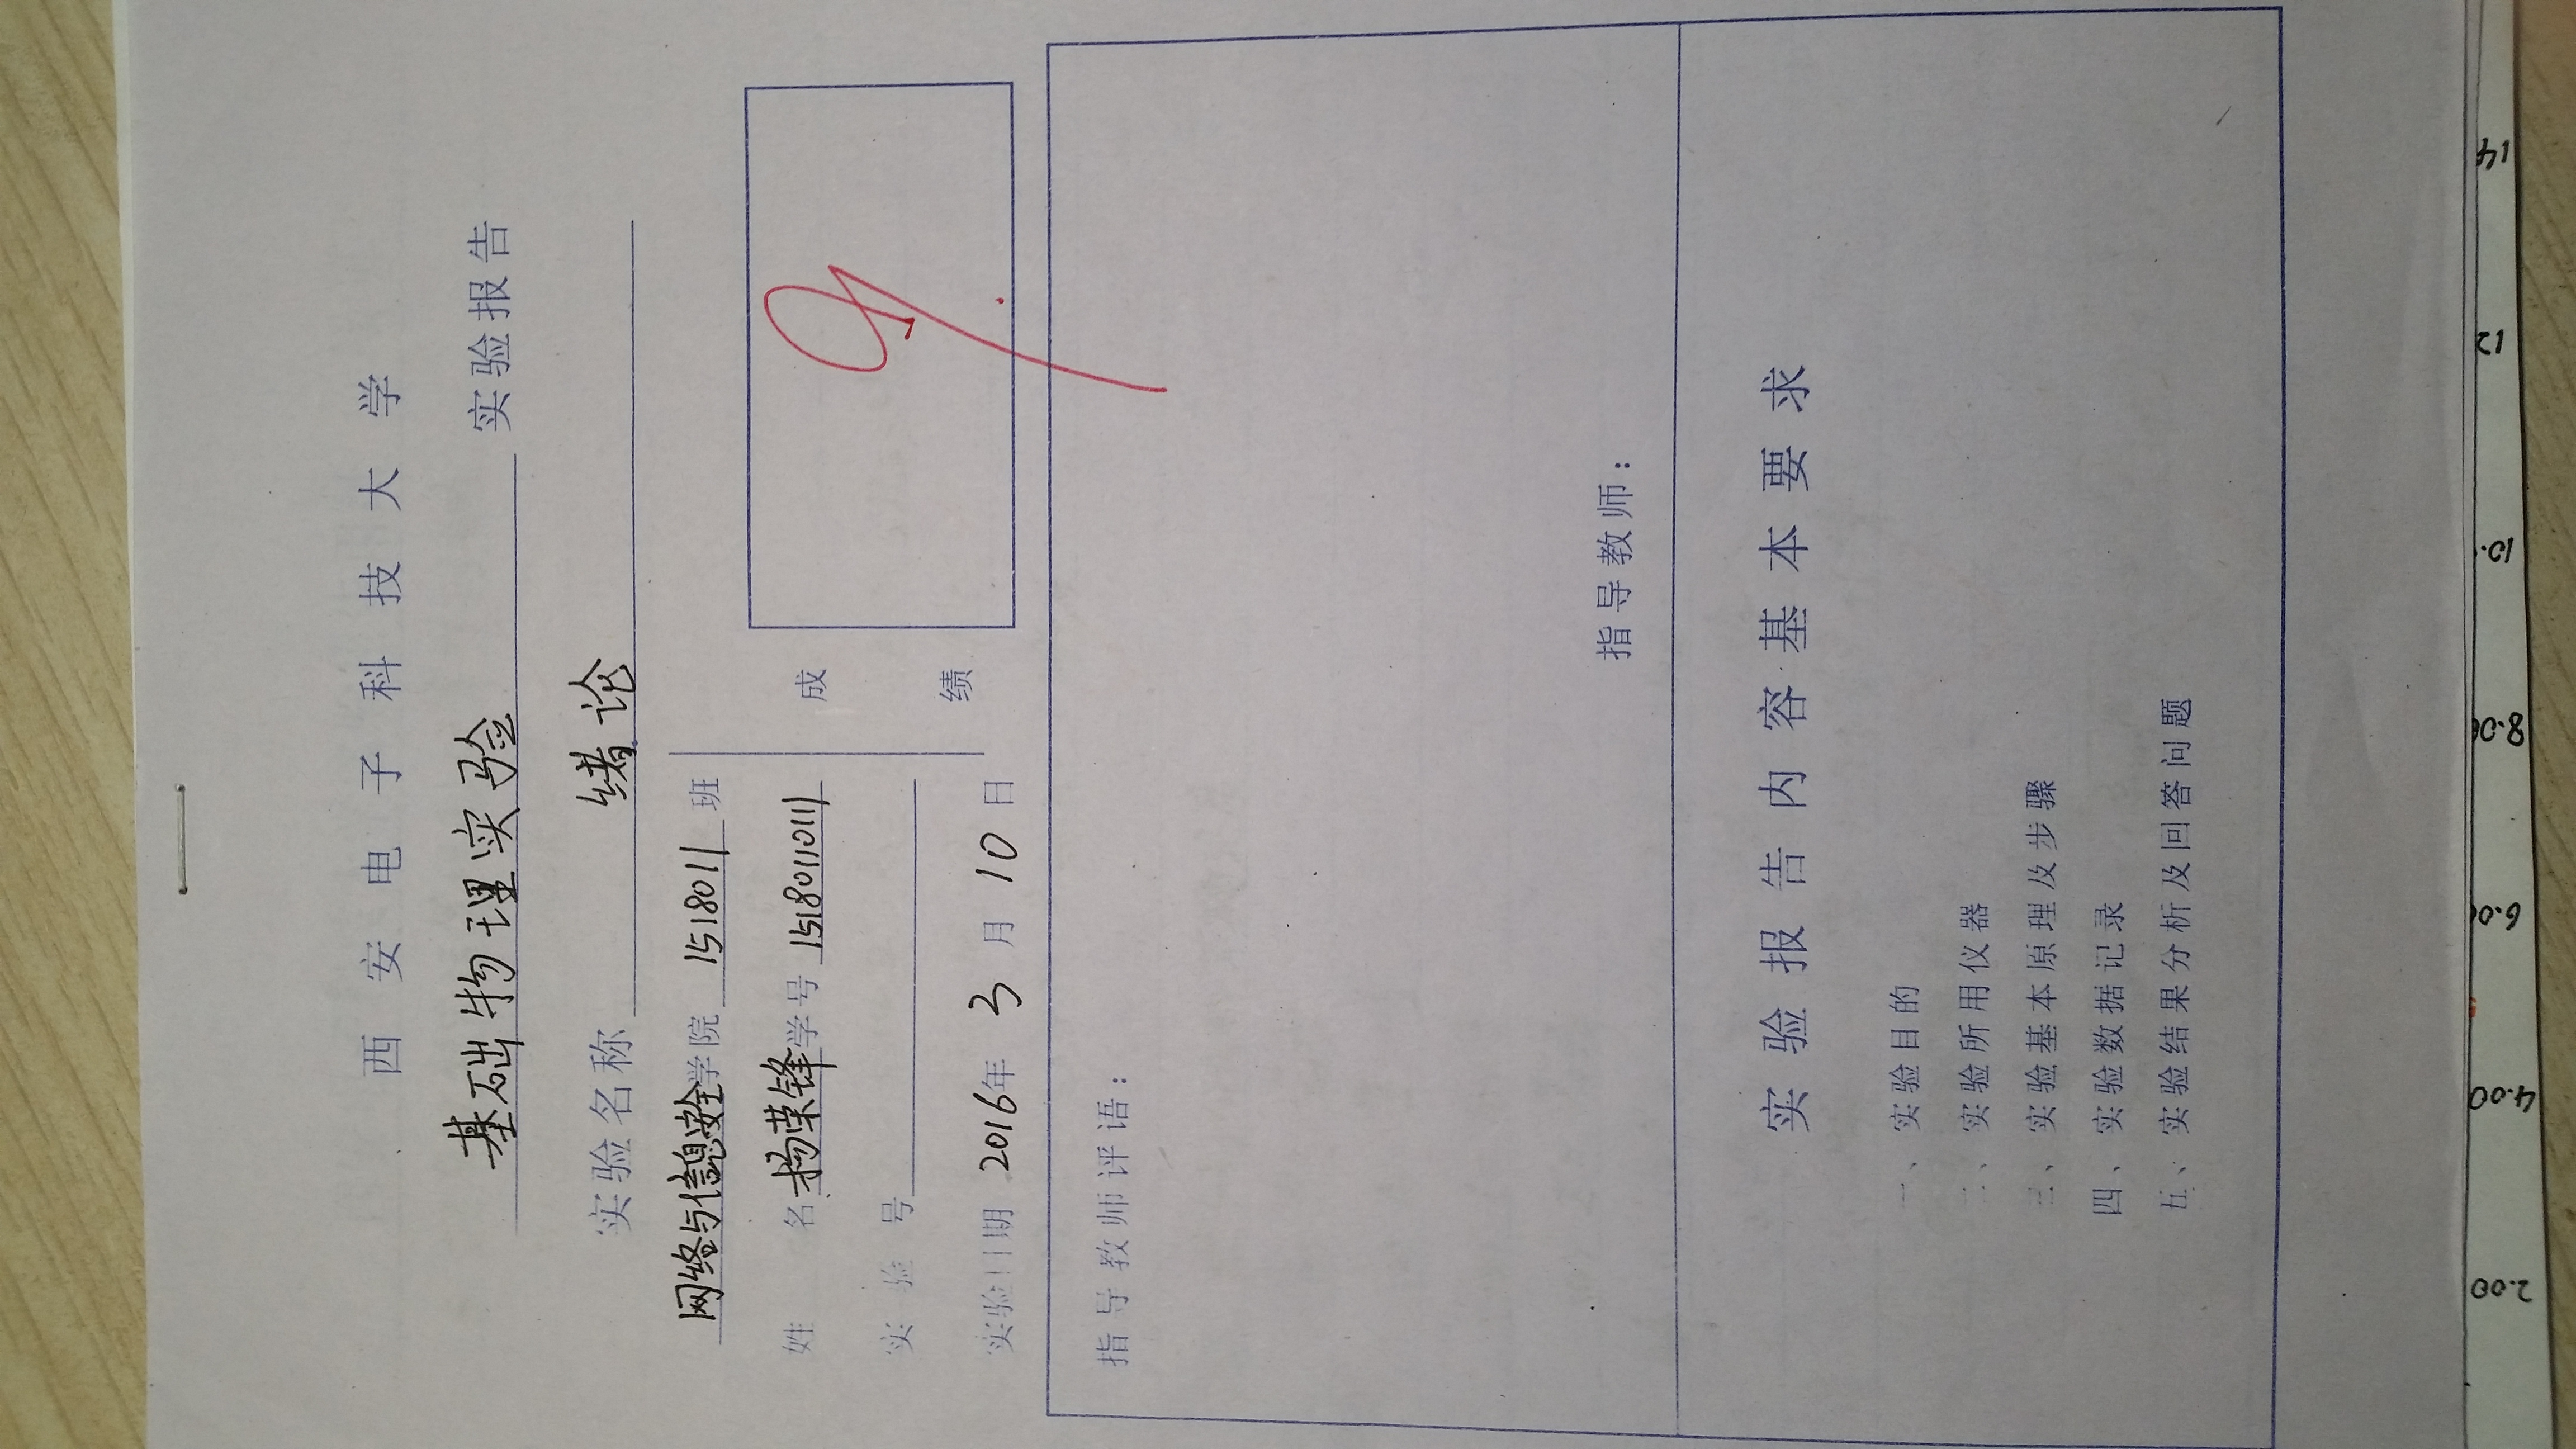 西安电子科技大学
基础物理实验 实验报告
实验名称 绪论
网络与信息安全学院 1518011 班
姓名 杨荣锋 学号 15180110111
实验号
实验日期 2016年 3 月 10 日
成绩
9
指导教师评语:
指导教师:
实验报告内容基本要求
一、实验目的
二、实验所用仪器
三、实验基本原理及步骤
四、实验数据记录
五、实验结果分析及回答问题
2.00
4.00
6.0
8.0
10.
12
14